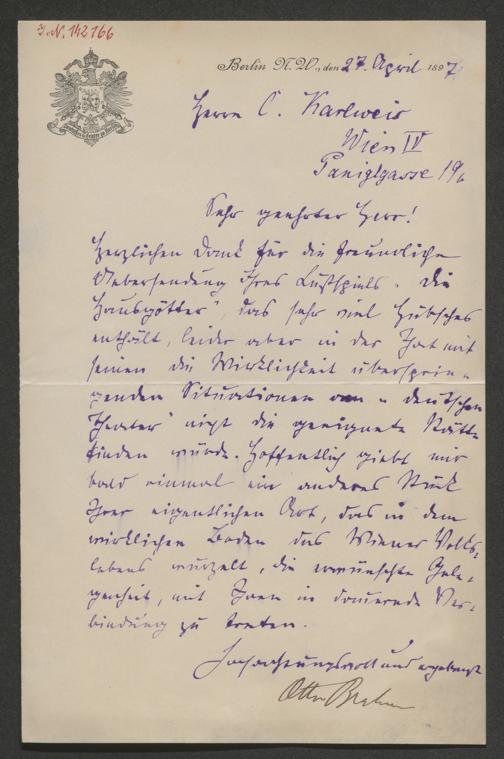 J.N. 142166
Berlin N.W., den 27. April 1897
Herrn C. Karlweis
Wien IV
Paniglgasse 19
Sehr geehrter Herr!
Herzlichen Dank für die freundliche
Uebersendung Ihres Lustspiels „Die
Hausgötter", das sehr viel Hübsches
enthält, leider aber in der That mit
seinen die Wirklichkeit übersprin-
genden Situationen am „deutschen
Theater" nicht die geeignete Stätte
finden würde. Hoffentlich giebt mir
bald einmal ein anderes Stück
Ihrer eigentlichen Art, das in dem
wirklichen Boden des Wiener Volks-
lebens wurzelt, die erwünschte Gele-
genheit, mit Ihnen in dauernde Ver-
bindung zu treten.
Hochachtungsvoll und ergebenst
Otto Brahm